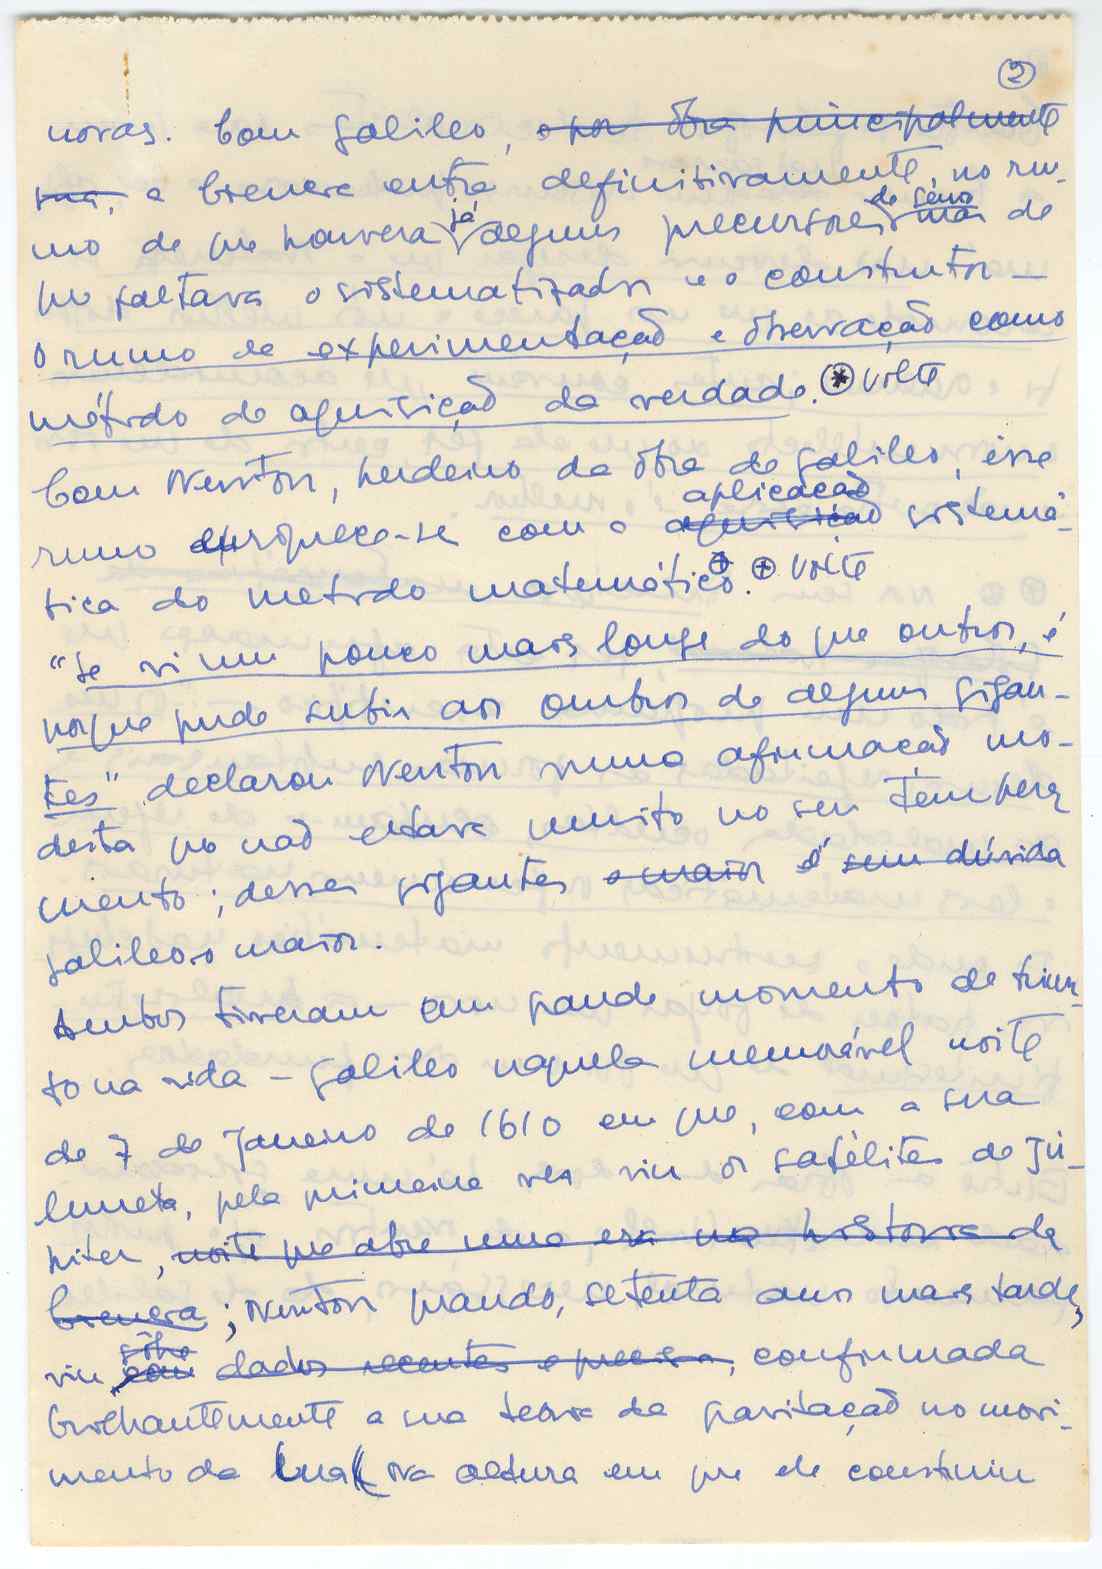 ②
novas. Com Galileo, e por obra principalmente
sua, a ciencia entra definitivamente, no ru-
mo de que houvera já alguns precursores de sémo mas de
que faltava o sistematizador e o construtor —
o rumo da experimentação e observação como
método de aquisição da verdade. ⊛ volte
Com Newton, herdeiro da obra de Galileo, êsse
rumo enriquece-se com a aplicação aquisição sistemá-
tica do metodo matemático. ⊕ ⊕ volte
"Se vi um pouco mais longe do que outros, é
porque pude subir aos ombros de alguns gigan-
tes" declarou Newton numa afirmação mo-
desta que não estava muito no seu tempera
mento; desses gigantes o maior é sem dúvida
Galileo o maior.
Ambos tiveram um grande momento de triun-
fo na vida – Galileo naquela memorável noite
de 7 de Janeiro de 1610 em que, com a sua
luneta, pela primeira vez viu os satélites de Jú-
piter, noite que abre uma era na história da
Ciencia; Newton quando, setenta anos mais tarde,
viu sôbre com dados recentes e precisos, confirmada
brilhantemente a sua teoria da gravitação no movi-
mento da Lua (na altura em que ele construiu